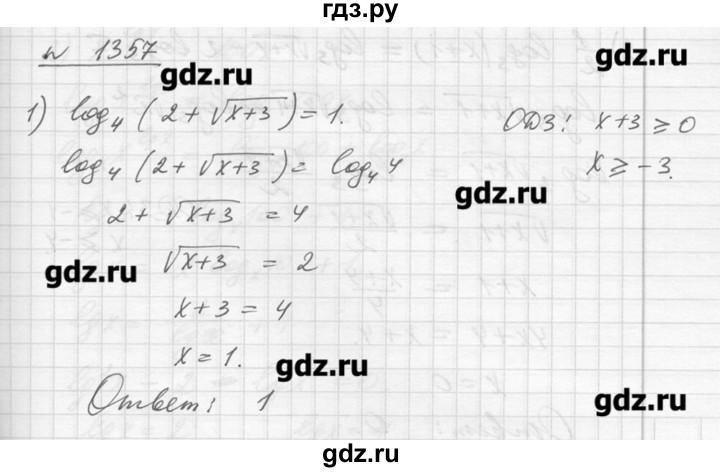 гдз.ру
N 1357
gdz.ru
gdz.ru
1) log₄(2 + √(x+3)) = 1.
ОДЗ: x+3 ≥ 0
log₄(2 + √(x+3)) = log₄4
x ≥ -3.
gdz.ru
2 + √(x+3) = 4
√(x+3) = 2
gdz.ru
x + 3 = 4
x = 1.
gdz.ru
Ответ: 1
gdz.ru
gdz.ru